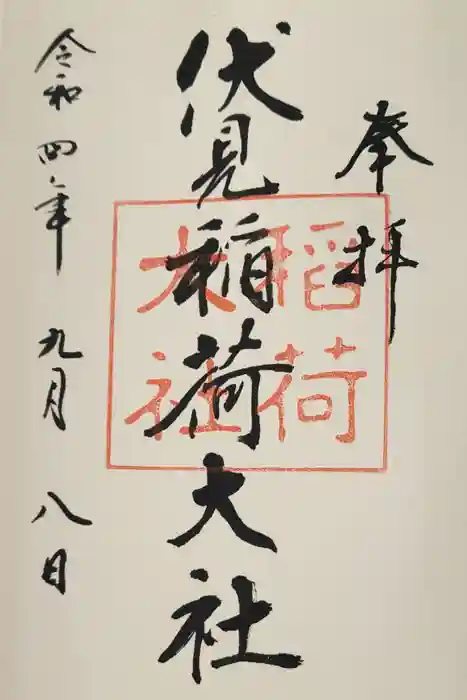 奉拝
伏見稲荷大社
稲荷
大社
令和四年九月八日